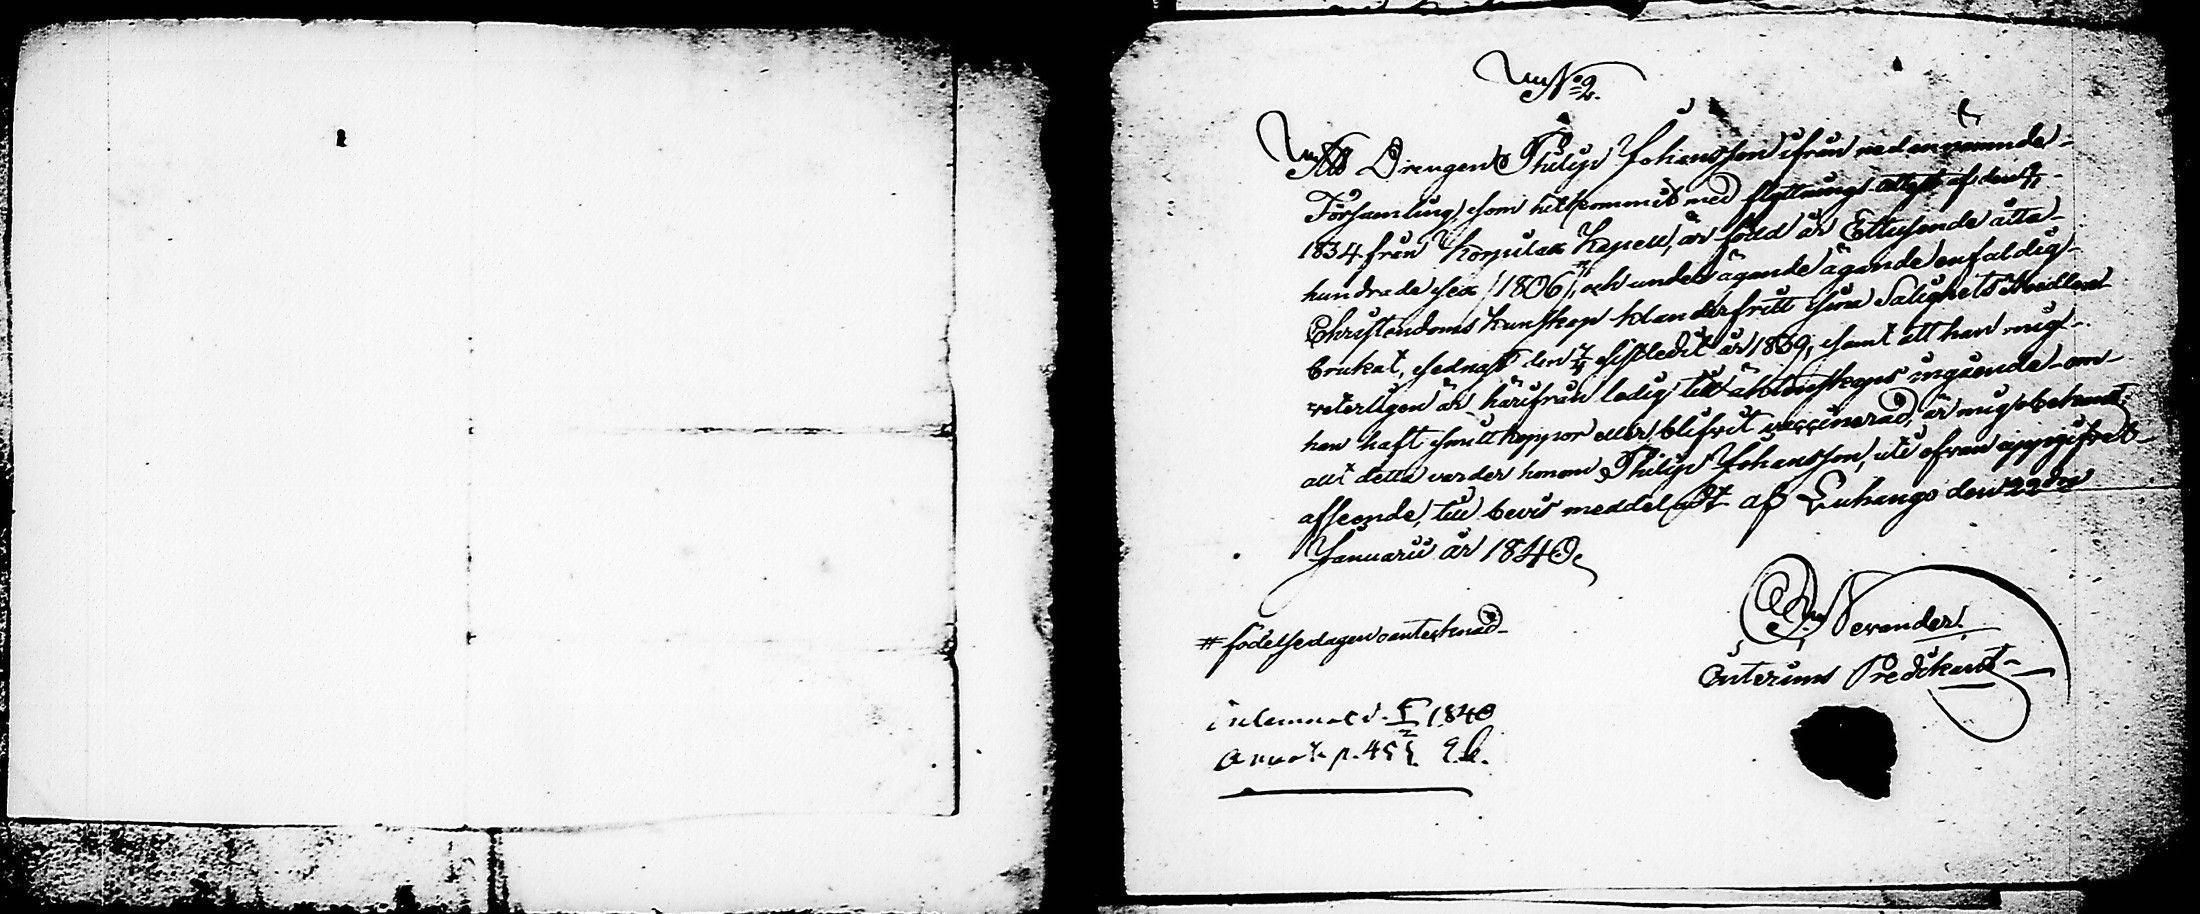 No 2.
Att Drengen Philip Johansson ifrån nedannämnde
Församling, som hitkommit med flyttnings attest af den
1834 från Korpilax Kapell, är född år Ettusende åtta
hundrade sex /1806/#, och under ägande ägande enfaldig
Christendoms kunskap klanderfritt sina Salighets Medlen
brukat, sednast den sistledit år 1839, samt att han mig
veterligen är härifrån ledig till äktenskaps ingående om
han haft smittkoppor eller blifvit vaccinerad, är mig obekant;
allt detta varder honom Philip Johansson, uti ofvan uppgifvet
afseende, till bevis meddeladt af Luhango den 22dra
Januarii år 1840.
Nevander.
Interims Predikant
# födelsedagen oantecknad
inlemnad d. 1840
Annot. p. 455